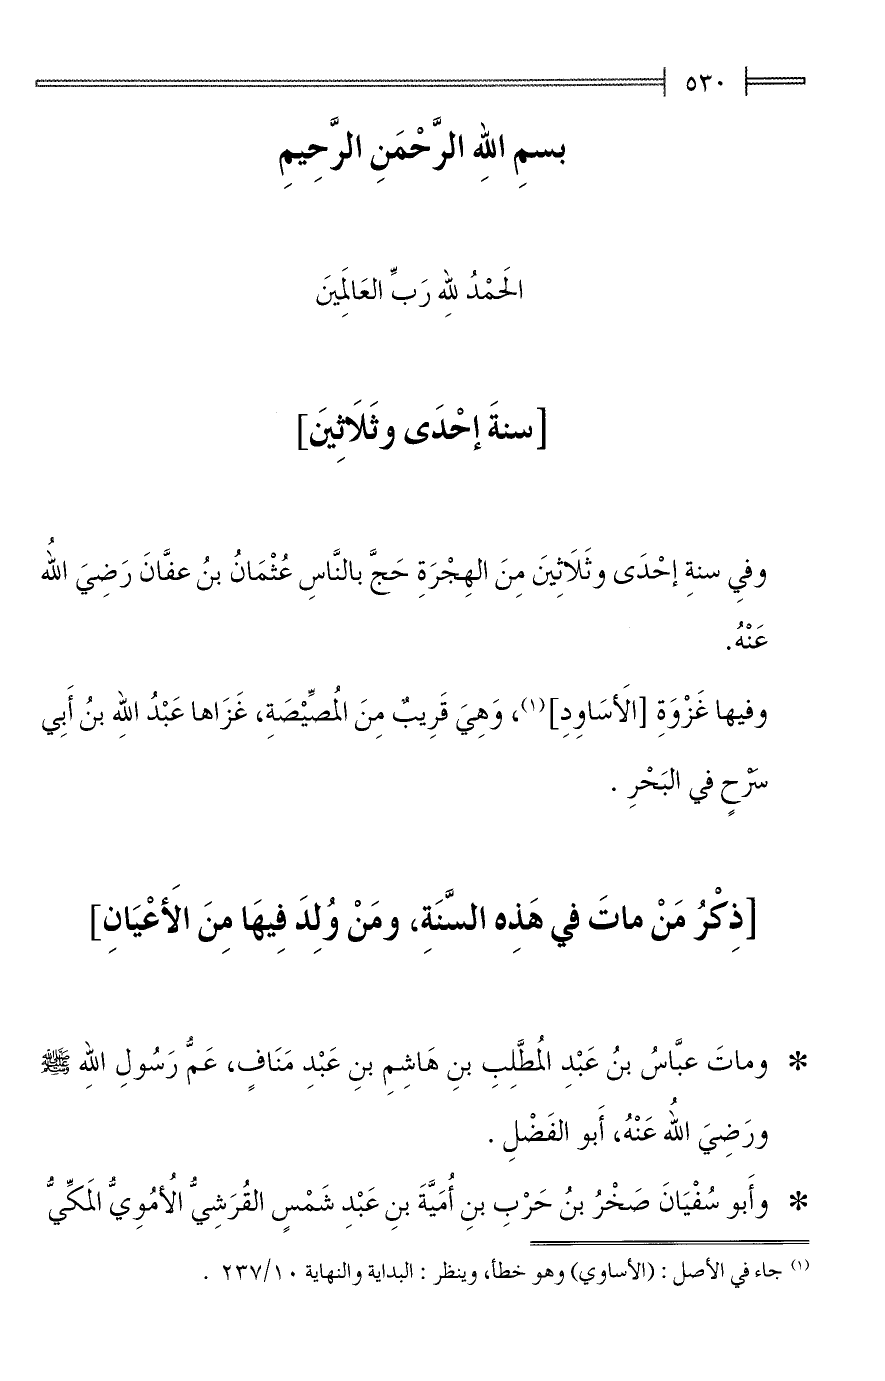 ٥٣٠
بسمِ اللهِ الرَّحْمَنِ الرَّحِيمِ
الحَمْدُ لِلهِ رَبِّ العَالَمِينَ
[سنةَ إحْدَى وثَلَاثِينَ]
وفي سنةِ إحْدَى وثَلَاثِينَ مِنَ الهِجْرَةِ حَجَّ بالنَّاسِ عُثْمَانُ بنُ عفَّانَ رَضِيَ اللهُ
عَنْهُ.
وفيها غَزْوَةِ [الأَسَاوِدِ](١)، وَهِيَ قَرِيبٌ مِنَ المُصِّيْصَةِ، غَزَاها عَبْدُ اللهِ بنُ أَبِي
سَرْحٍ في البَحْرِ .
[ذِكْرُ مَنْ ماتَ في هَذِه السَّنَةِ، ومَنْ وُلِدَ فِيهَا مِنَ الأَعْيَانِ]
* وماتَ عبَّاسُ بنُ عَبْدِ المُطَّلِبِ بنِ هَاشِمِ بنِ عَبْدِ مَنَافٍ، عَمُّ رَسُولِ اللهِ ﷺ
ورَضِيَ اللهُ عَنْهُ، أَبو الفَضْلِ .
* وأَبو سُفْيَانَ صَخْرُ بنُ حَرْبِ بنِ أُمَيَّةَ بنِ عَبْدِ شَمْسٍ القُرَشِيُّ الأُمُوِيُّ المَكِّيُّ
(١) جاء في الأصل : (الأساوي) وهو خطأ، وينظر : البداية والنهاية ٢٣٧/١٠ .